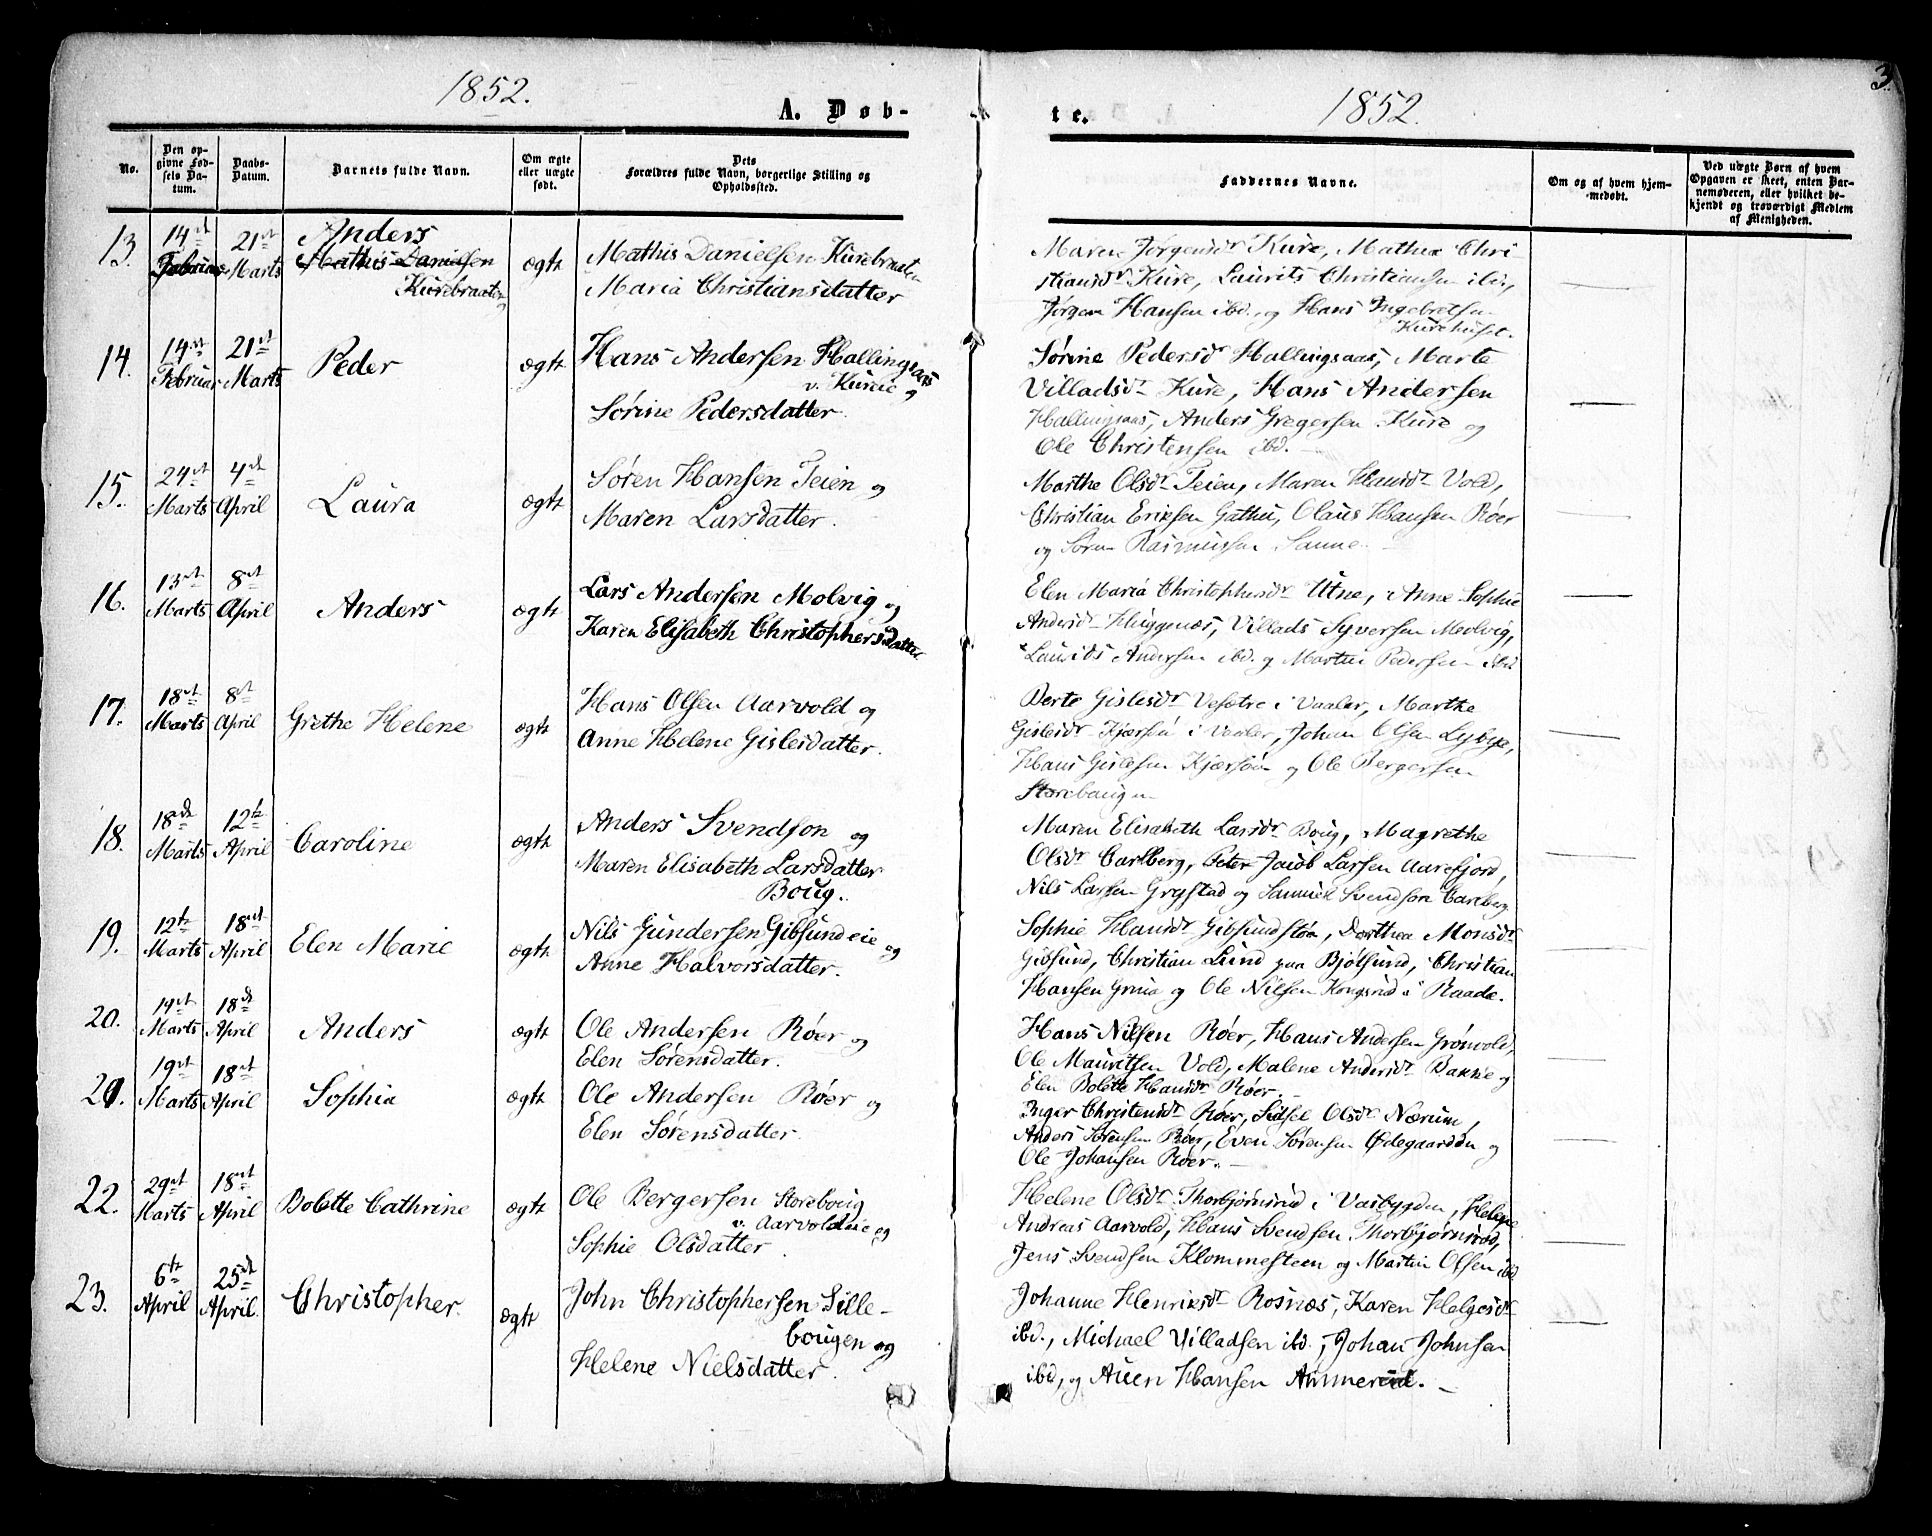 1852.
A. Døb-
No.
Den op-
givne Fød-
sels Da-
tum.
Daabs-
Datum.
Barnets fulde Navn.
Om ægte
eller uægte
født.
Dets
Forældres fulde Navn, borgerlige Stilling og
Opholdssted.
13.
14de
Februar
21de
Marts
Anders
Mathis Danielsen
Kurebraaten
ægte
Mathis Danielsen Kurebraaten
Maria Christiansdatter
14.
14de
Februar
21de
Marts
Peder
ægte
Hans Andersen Hallingsaas
v. Kureie og
Sørine Pedersdatter.
15.
24de
Marts
4de
April
Laura
ægte
Søren Hansen Teien og
Maren Larsdatter.
16.
13de
Marts
8de
April
Anders
ægte
Lars Andersen Molvig og
Karen Elisabeth Christophersdatter
17.
18de
Marts
8de
April
Grethe Helene
ægte
Hans Olsen Aarvold og
Anne Helene Gislesdatter.
18.
18de
Marts
12te
April
Caroline
ægte
Anders Svendsen og
Maren Elisabeth Larsdatter
Boug.
19.
12te
Marts
18de
April
Elen Marie
ægte
Nils Gundersen Gibsundeie og
Anne Halvorsdatter.
20.
14de
Marts
18de
April
Anders
ægte
Ole Andersen Røer og
Elen Sørensdatter.
21.
19de
Marts
18de
April
Sophia
ægte
Ole Andersen Røer og
Elen Sørensdatter.
22.
29de
Marts
18de
April
Bolette Cathrine
ægte
Ole Bergersen Storeboug
v. Aarvoldeie og
Sophie Olsdatter.
23.
6te
April
25de
April.
Christopher.
ægte
John Christophersen Sille-
bougen og
Helene Nielsdatter.
3.
1852.
te.
Faddernes Navne.
Om og af hvem hjem-
medøbt.
Ved uægte Børn af hvem
Opgaven er skeet, enten Bar-
nemoderen, eller hvilket be-
kjendt og troværdigt Medlem
af Menigheden.
Maren Jørgensdr Kure, Mathea Chri-
stiansdr Kure, Laurits Christiansen ibd.,
Jørgen Hansen ibd. og Hans Ingebretsen
Kurehuset.
Sørine Pedersdr Hallingsaas, Marte
Villadsdr Kure, Hans Andersen
Hallingsaas, Anders Gregersen Kure og
Ole Christensen ibd.
Marthe Olsdr Teien, Maren Hansdr Vold,
Christian Eriksen Gathu, Olaus Hansen Røer
og Søren Rasmussen Sanne.
Elen Maria Christophersdr Utne, Anne Sophie
Andersdr Huggenæs, Villads Syversen Molvig,
Laurids Andersen ibd. og Martin Pedersen ibd
Berte Gislesdr Vesætre i Vaaler, Marthe
Gislesdr Kjærsøn i Vaaler, Johan Olsen Lybye,
Hans Gislesen Kjærsøn og Ole Bergersen
Storebougen
Maren Elisabeth Larsdr Boug, Magrethe
Olsdr Carlberg, Peter Jacob Larsen Aarefjord,
Nils Larsen Grystad og Samuel Svendsen Carlberg
Sophie Hansdr Gibsundstøa, Dorthea Monsdr
Gibsund, Christian Lund paa Bjølsund, Christian
Hansen Grua og Ole Nilsen Kongsrud i Raade.
Hans Nilsen Røer, Hans Andersen Grønvold,
Ole Mauritsen Vold, Malene Andersdr Bakke og
Elen Bolette Hansdr Røer.
Inger Christensdr Røer, Sidsel Olsdr Nærum,
Anders Sørensen Røer, Even Sørensen Ødegaarden og
Ole Johansen Røer.
Helene Olsdr Thorbjørnsrød i Vasbygden, Helene
Andreas Aarvold, Hans Svendsen Thorbjørnsrød,
Jens Svendsen Klommesteen og Martin Olsen ibd
Johanne Henriksdr Rosnæs, Karen Helgesdr
ibd., Michael Villadsen ibd., Johan Johnsen
ibd, og Auen Hansen Ammerød.